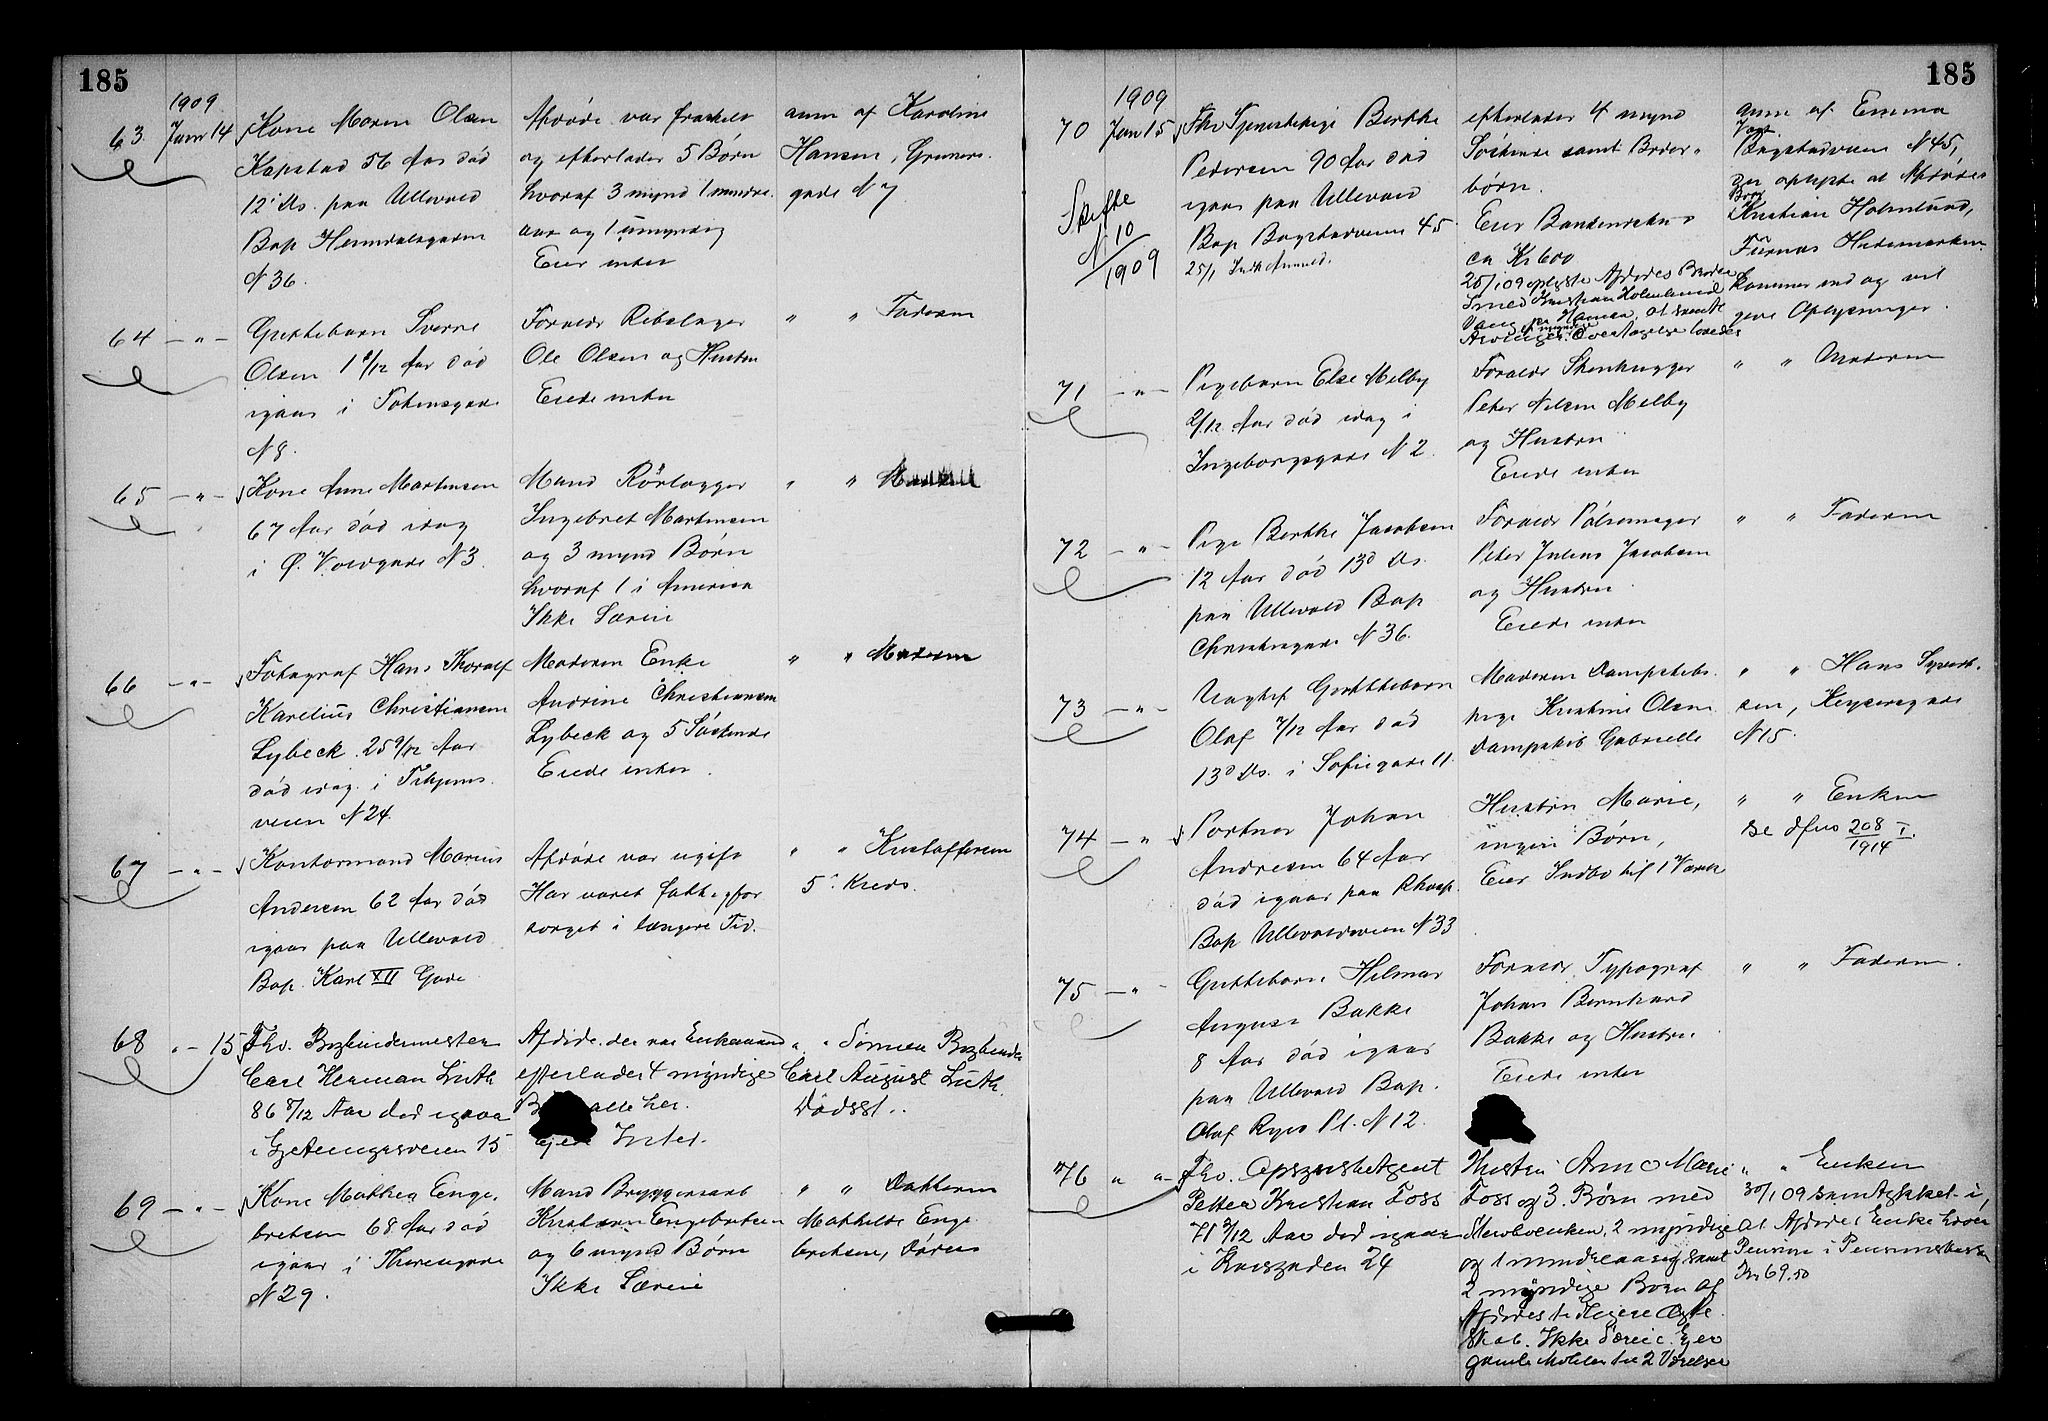 185
1909
63. Janr 14 Kone Maren Olsen
Kapstad 56 Aar død
12' ds. paa Ullevaal
Bop Heimdalsgaden
N 36.
Afdøde var fraskilt
og efterlader 5 Børn
hvoraf 3 mynd 1 mindre-
aar og 1 umyndig
Eier intet
anm af Karoline
Hansen, Gruners-
gade N 7
64 — " — Guttebarn Sverre
Olsen 1 8/12 Aar død
igaar i Totensgade
N 8.
Forældr Rebslager
Ole Olsen og Hustru
Eiede intet
" " Faderen
65 — " — Kone Anne Martinsen
67 Aar død idag
i Ø. Voldgade N 3.
Mand Rørlægger
Ingebret Martinsen
og 3 mynd Børn
hvoraf 1 i Amerika
Ikke Særeie
" "
66 — " — Fotograf Hans Thoralf
Karelius Christiansen
Lybeck 25 9/12 Aar
død idag i
veien N 24.
Moderen Enke
Andrine Christiansen
Lybeck og 5 Søskende
Eiede intet
" " Moderen
67 — " — Kontormand Marius
Andersen 62 Aar død
igaar paa Ullevaal
Bop. Karl XII Gade
Afdøde var ugift
Har været fattigfor
sørget i længere Tid.
" " Kristoffersen
5' Kreds.
68 " — 15 Fhv. Bogbindermester
Carl Herman Luth
86 8/12 Aar død igaar
i Gjetemyrsveien 15
Afdøde der var Enkemand
efterlader 4 myndige
alle her.
Ejer Intet.
" " Sønnen Bogbinder
Carl August Luth
Dødsst..
69 — " — Kone Mathea Enge-
bretsen 68 Aar død
igaar i Thorsgade
N 29.
Mand Bryggerarb
Kristian Engebretsen
og 6 mynd Børn
Ikke Særeie
" " Datteren
Mathilde Enge
bretsen, Døren
185
1909
70 Jan 15 Fhv Tjenestepige Berthe
Pedersen 90 Aar død
igaar paa Ullevaal
Bop Bogstadveien 45
25/1
Skifte
N 10/1909
efterlader 4 mynd
Søskende samt Broder-
børn.
Eier Bankindsku-
ca Kr 600
25/1 09 oplyste Afdødes Broder
Smed Kristian Holmlund
Vang pr Hamar, at samtl
Arvinger er myndige Overtagelse
anm af Emma
Bogstadveien N 45,
der oplyste at Afdødes
Bror
Kristian Holmlund,
Furnæs Hedemarken
kommer ind og vil
give Oplysninger.
71 — " — Pigebarn Else Melby
2/12 Aar død idag i
Ingeborgsgade N 2.
Forældr Stenhugger
Peter Nilsen Melby
og Hustru
Eiede intet
" " Moderen
72 — " — Pige Berthe Jacobsen
12 Aar død 13' ds.
paa Ullevaal Bop
Christiesgade N 36.
Forældr Pølsemager
Peter Julius Jacobsen
og Hustru
Eiede intet
" " Faderen
73 — " — Uægtef Guttebarn
Olaf 7/12 Aar død
13' ds. i Sofiegade 11.
Moderen Dampskibs-
pige Kristine Olsen
Dampskib Gabrielle
" " Hans Syvert-
sen, Keysersgade
N 15.
74 — " Portner Johan
Andresen 64 Aar
død igaar paa Rhosp.
Bop Ullevaalsveien N 33
Hustru Marie,
ingen Børn,
Eier Indbo til 1 Værelse
" " Enken
Se dfus 208/1914 I.
75 — " — Guttebarn Hilmar
August Bakke
8 Aar død igaar
paa Ullevaal Bop.
Olaf Ryes Pl. N 12.
Forældr Typograf
Johan Bernhard
Bakke og Hustru
Eiede intet
" " Faderen.
76 " " Fhv. Opsynsbetjent
Petter Kristian Foss
71 9/12 Aar død igaar
i Krugsgaden 24
Hustru Anne Marie
Foss og 3 Børn med
Stervboenken, 2 myndige
og 1 mindreaarig samt
2 myndige Børn af
Afdødes tidligere Ægte
skab. Ikke Særeie. Ejer
gamle Møbler til 2 Værelser
" " Enken
30/1 09 samtykket i,
at Afdødes Enke hæver
Pension i Pensionskassen
Kr 69.50